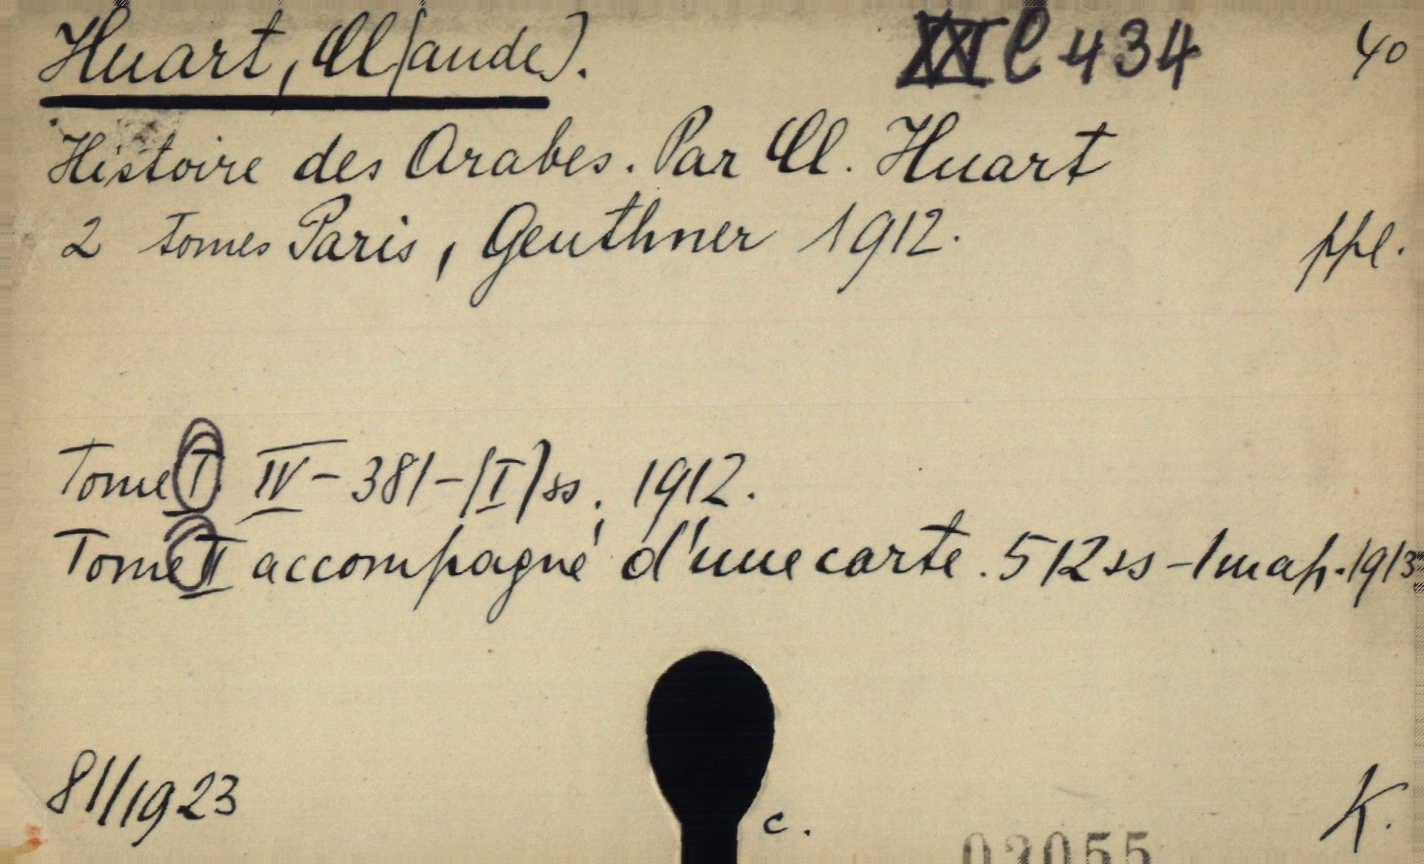 Huart, Cl[aude]. XXI C 434 40
Histoire des Arabes. Par Cl. Huart
2 tomes Paris, Geuthner 1912. ppl.
Tome I. IV - 381 - [I] ss. 1912.
Tome II accompagné d'une carte. 512 ss - 1 map. 1913
81/1923
c. K.